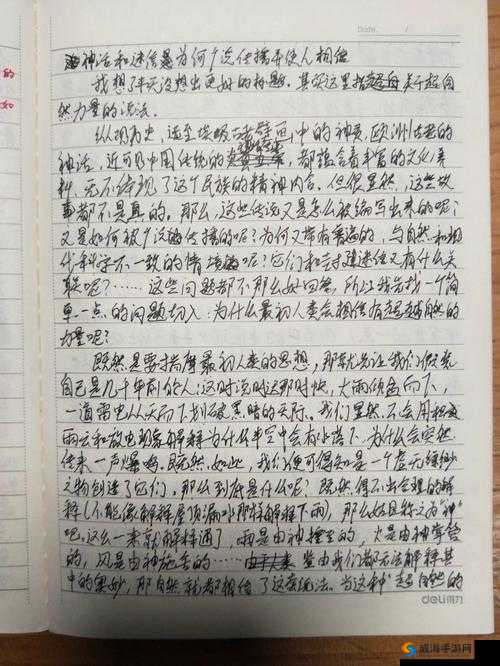 Date.
神话和迷信是为何广泛传播并使人相信
我想了半天没想出更好的标题。其实这里指的是关于超自
然力量的说法。
纵观历史,远至埃及壁画中的神灵,欧洲古老的
神话,近可见中国传统的,都蕴含着丰富的文化
料,无不体现了这个民族的精神内含。但很显然,这些故
事都不是真的。那么,这些传说又是怎么被编写出来的呢?
又是如何被广泛的传播的呢?为何又带有的,与自然和现
代科学不一致的情呢?它们和封建迷信又有什么关
联呢?……这些问题都不那么好回答,所以我先找一个简
单一点的问题切入:为什么最初人类会相信有超越自然的
力量呢?
既然是要揣摩最初人类的思想,那就先让我们假定
自己是几千年前的人:这时说时迟那时快,大雨倾盆而下,
一道雷电从天而下划破黑暗的天际。我们显然不会用积
雨云和放电现象解释为什么半空中会有水落下,为什么会突然
传来一声爆鸣。既然如此,我们便可得知是一个虚无缥缈
之物创造了它们,那么到底是什么呢?既然得不出合理的解
释(不能像解释屋顶漏水那样解释下雨),那么姑且称之为“神”
吧。这么一来就解释通了,雨是由神撒的,火是由神掌管
的,风是由神施舍的……当由我们都无法解释其
中的奥妙,那自然就都相信了这套说法。当这种“超自然的
deli得力
威海手游网